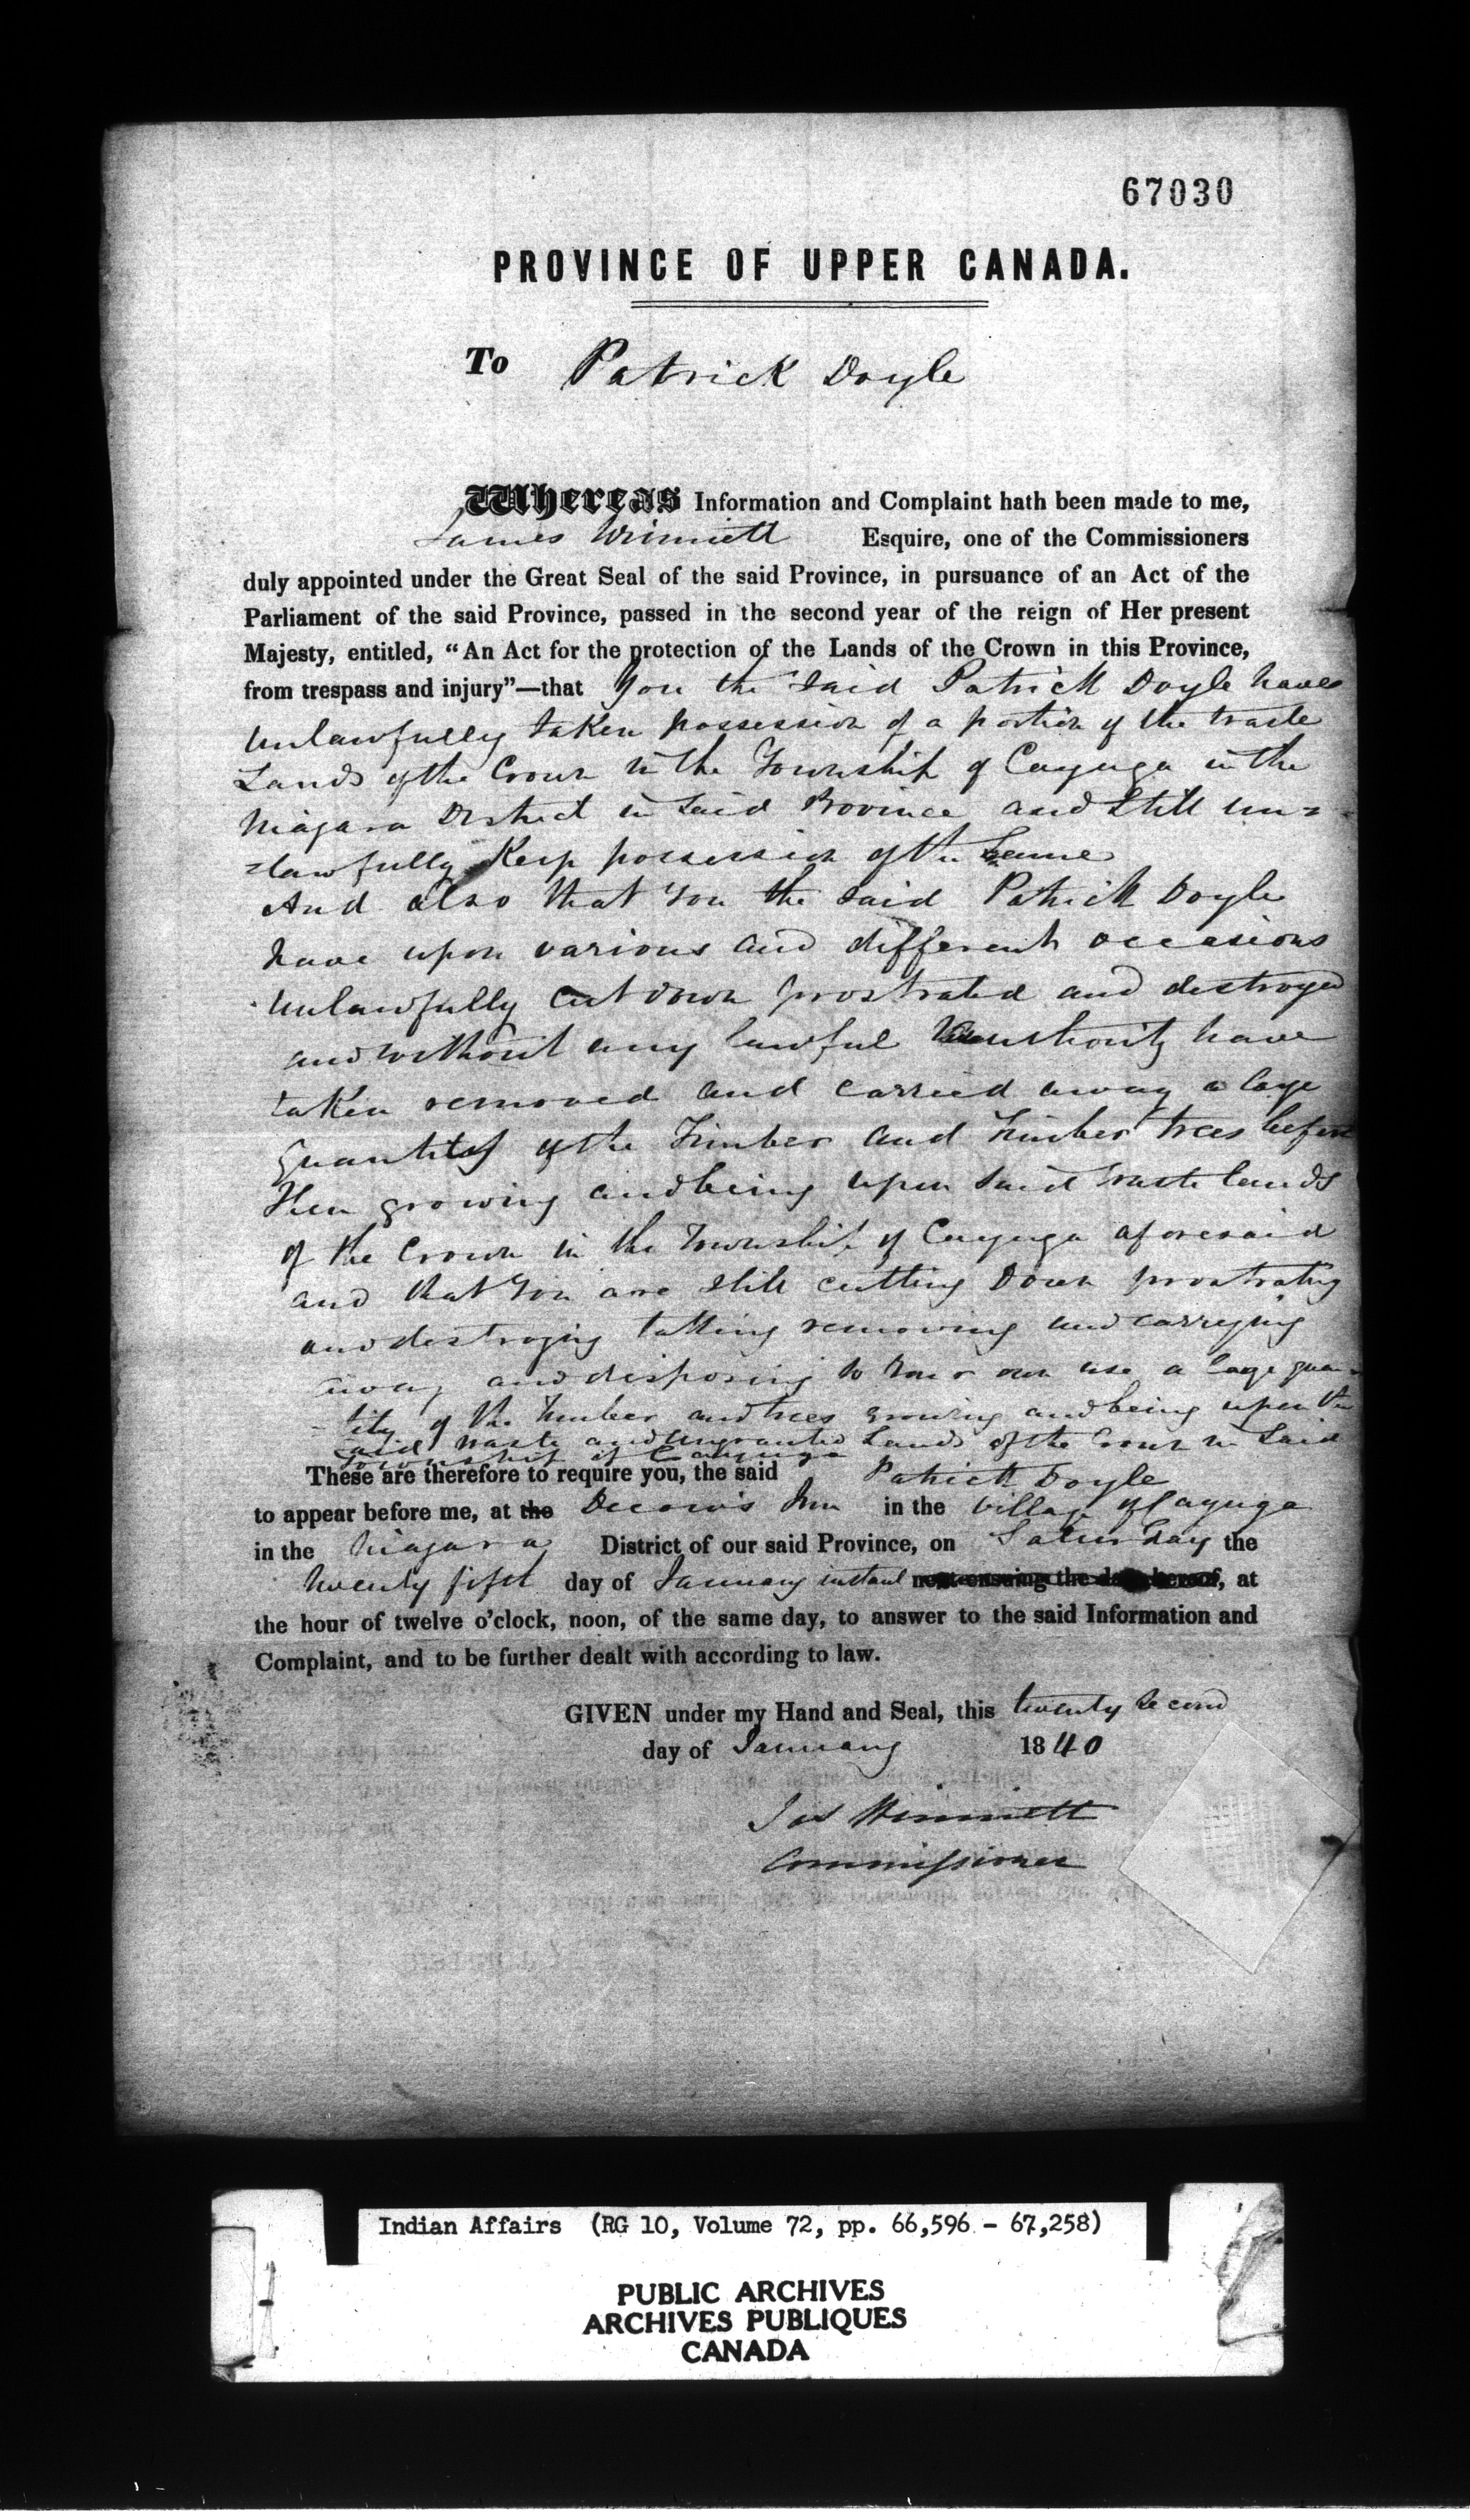 67030
PROVINCE OF UPPER CANADA.
To Patrick Doyle
Whereas Information and Complaint hath been made to me,
James Winniett Esquire, one of the Commissioners
duly appointed under the Great Seal of the said Province, in pursuance of an Act of the
Parliament of the said Province, passed in the second year of the reign of Her present
Majesty, entitled, “An Act for the protection of the Lands of the Crown in this Province,
from trespass and injury”—that You the said Patrick Doyle have
unlawfully taken possession of a portion of the waste
Lands of the Crown in the Township of Cayuga in the
Niagara District in said Province and still un=
=lawfully Keep possession of the Same
And also that You the said Patrick Doyle
have upon various and different occasions
unlawfully cut down prostrated and destroyed
and without any lawful authority have
taken removed and carried away a large
quantity of the Timber and Timber trees before
then growing and being upon said waste lands
of the Crown in the Township of Cayuga aforesaid
and that You are still cutting Down prostrating
and destroying taking removing and carrying
away and disposing to Your own use a large quan-
-tity of the timber and trees growing and being upon the
said waste and ungranted Lands of the Crown in Said
Township of Cayuga
These are therefore to require you, the said Patrick Doyle
to appear before me, at the Decow's Inn in the Village of Cayuga
in the Niagara District of our said Province, on Saturday the
twenty fifth day of January instant next ensuing the date hereof, at
the hour of twelve o’clock, noon, of the same day, to answer to the said Information and
Complaint, and to be further dealt with according to law.
GIVEN under my Hand and Seal, this twenty second
day of January 1840
Jas Winniett
Commissioner
Indian Affairs (RG 10, Volume 72, pp. 66,596 - 67,258)
PUBLIC ARCHIVES
ARCHIVES PUBLIQUES
CANADA